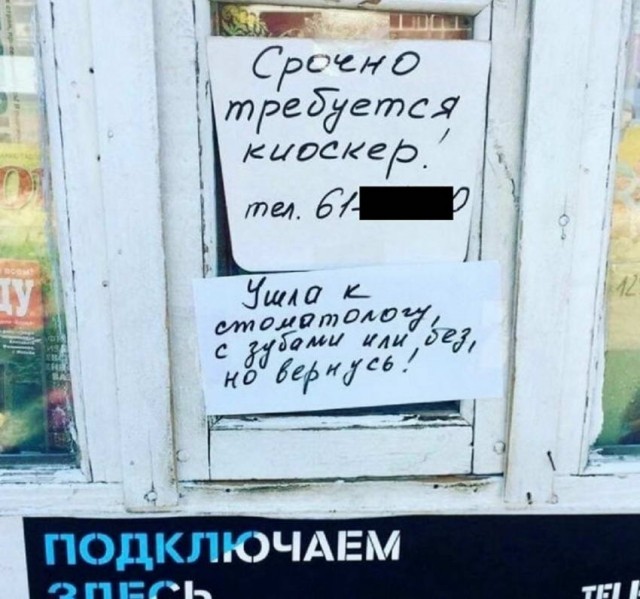 Срочно
требуется
киоскер!
тел. 61-
Ушла к
стоматологу,
с зубами или без,
но вернусь!
ПОДКЛЮЧАЕМ
ЗДЕСЬ
ДУ